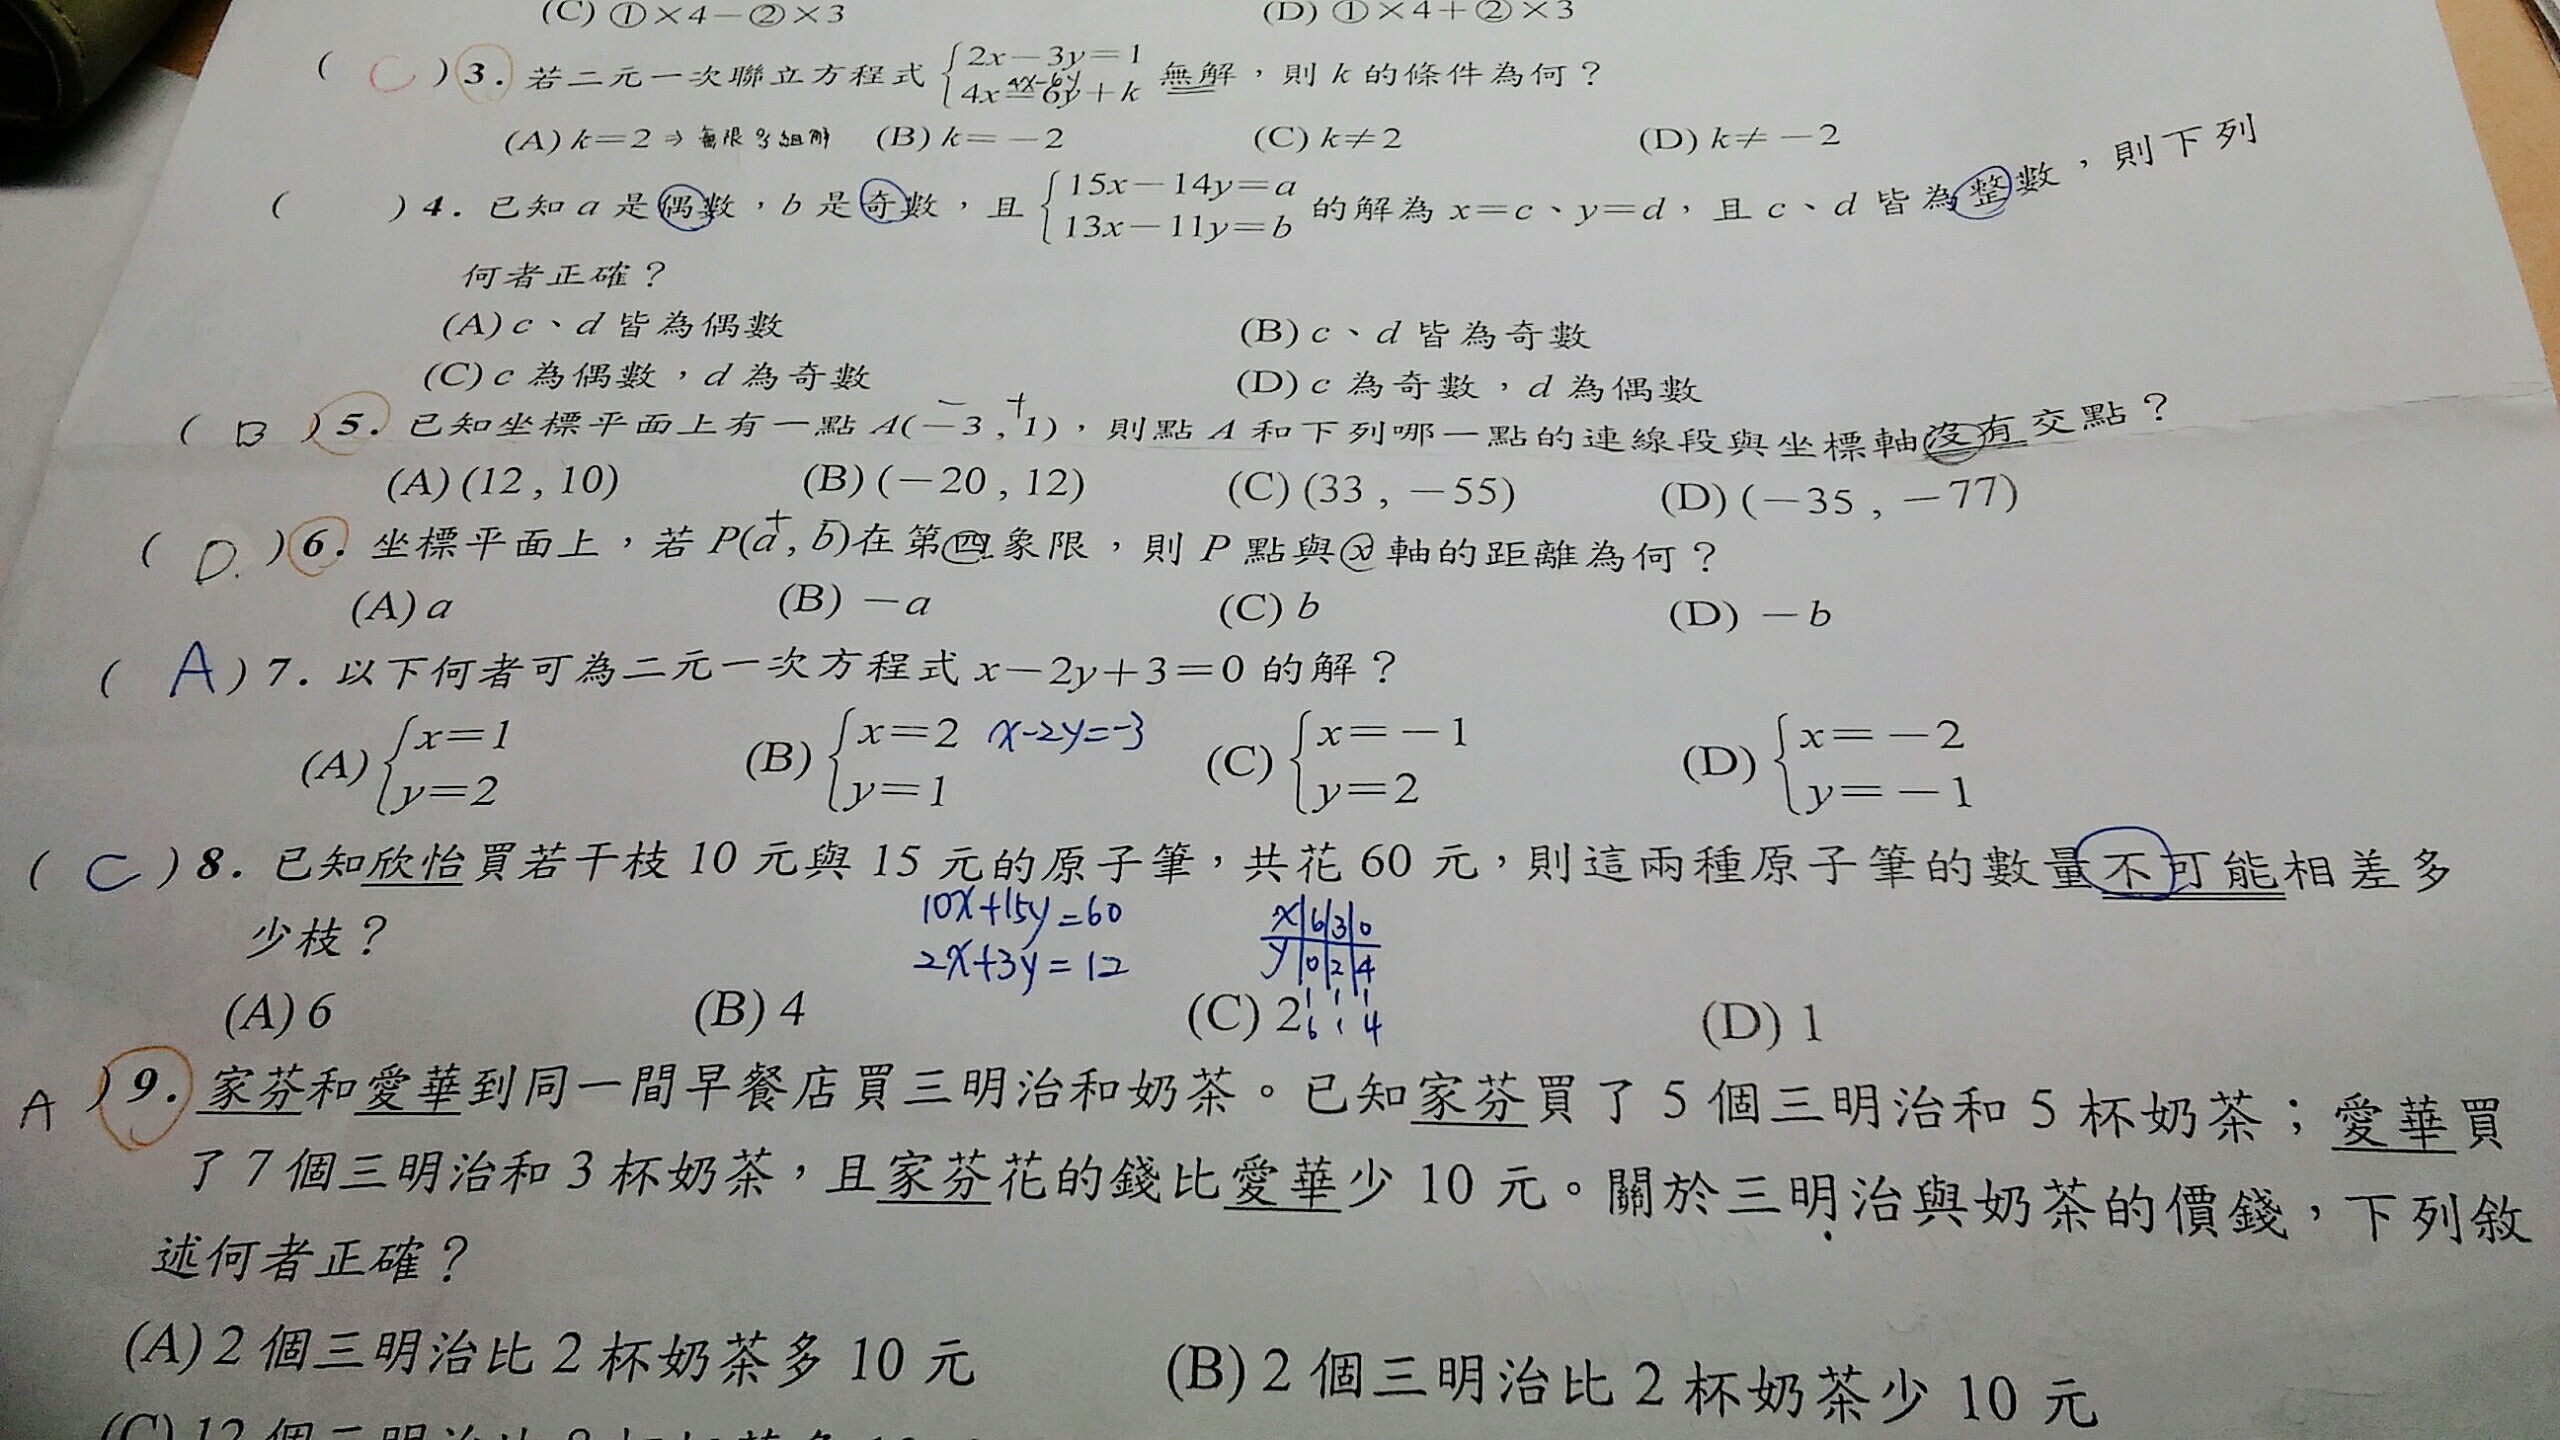 (C) ①×4－②×3 (D) ①×4＋②×3
( C )3. 若二元一次聯立方程式 {2x－3y＝1 無解，則 k 的條件為何？
4x－6y
4x＝6y＋k
(A) k＝2 ⇒ 無限多組解 (B) k＝－2 (C) k≠2 (D) k≠－2
( )4. 已知 a 是偶數，b 是奇數，且 {15x－14y＝a 的解為 x＝c、y＝d，且 c、d 皆為整數，則下列
13x－11y＝b
何者正確？
(A) c、d 皆為偶數 (B) c、d 皆為奇數
(C) c 為偶數，d 為奇數 (D) c 為奇數，d 為偶數
－ ＋
( B )5. 已知坐標平面上有一點 A(－3 , 1)，則點 A 和下列哪一點的連線段與坐標軸沒有交點？
(A) (12 , 10) (B) (－20 , 12) (C) (33 , －55) (D) (－35 , －77)
＋ －
( D. )6. 坐標平面上，若 P(a , b)在第四象限，則 P 點與 x 軸的距離為何？
(A) a (B) －a (C) b (D) －b
( A )7. 以下何者可為二元一次方程式 x－2y＋3＝0 的解？
(A) {x＝1 (B) {x＝2 x-2y=-3 (C) {x＝－1 (D) {x＝－2
y＝2 y＝1 y＝2 y＝－1
( C )8. 已知欣怡買若干枝 10 元與 15 元的原子筆，共花 60 元，則這兩種原子筆的數量不可能相差多
少枝？ 10x+15y=60 x|6|3|0
2x+3y=12 y|0|2|4
(A) 6 (B) 4 (C) 2 6 1 4 (D) 1
A )9. 家芬和愛華到同一間早餐店買三明治和奶茶。已知家芬買了 5 個三明治和 5 杯奶茶；愛華買
了 7 個三明治和 3 杯奶茶，且家芬花的錢比愛華少 10 元。關於三明治與奶茶的價錢，下列敘
述何者正確？
(A) 2 個三明治比 2 杯奶茶多 10 元 (B) 2 個三明治比 2 杯奶茶少 10 元
(C) 12 個三明治比